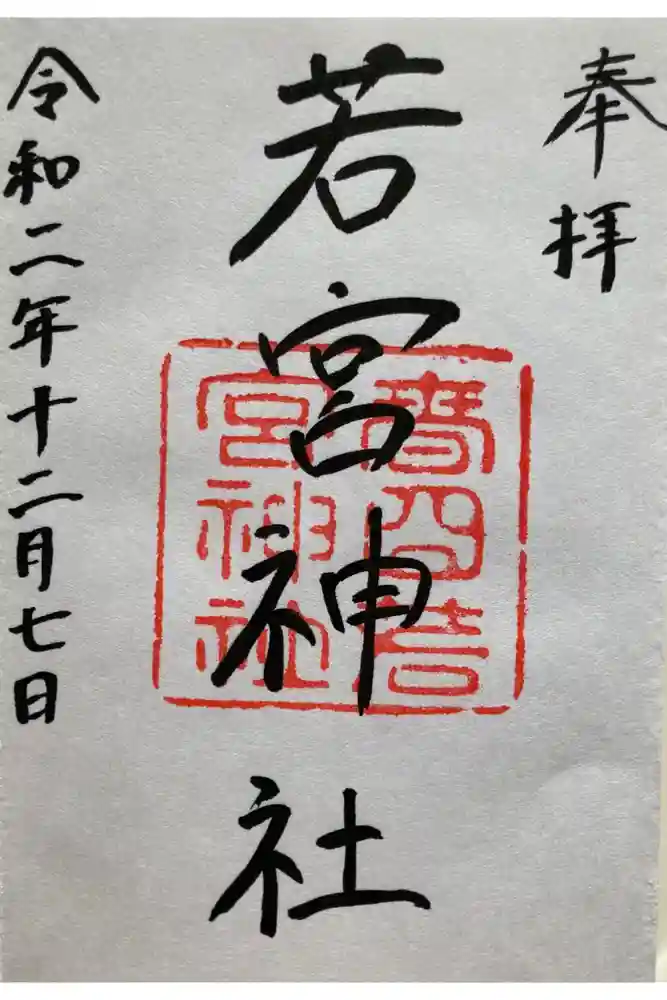 奉拝
若宮神社
宮神社
令和二年十二月七日